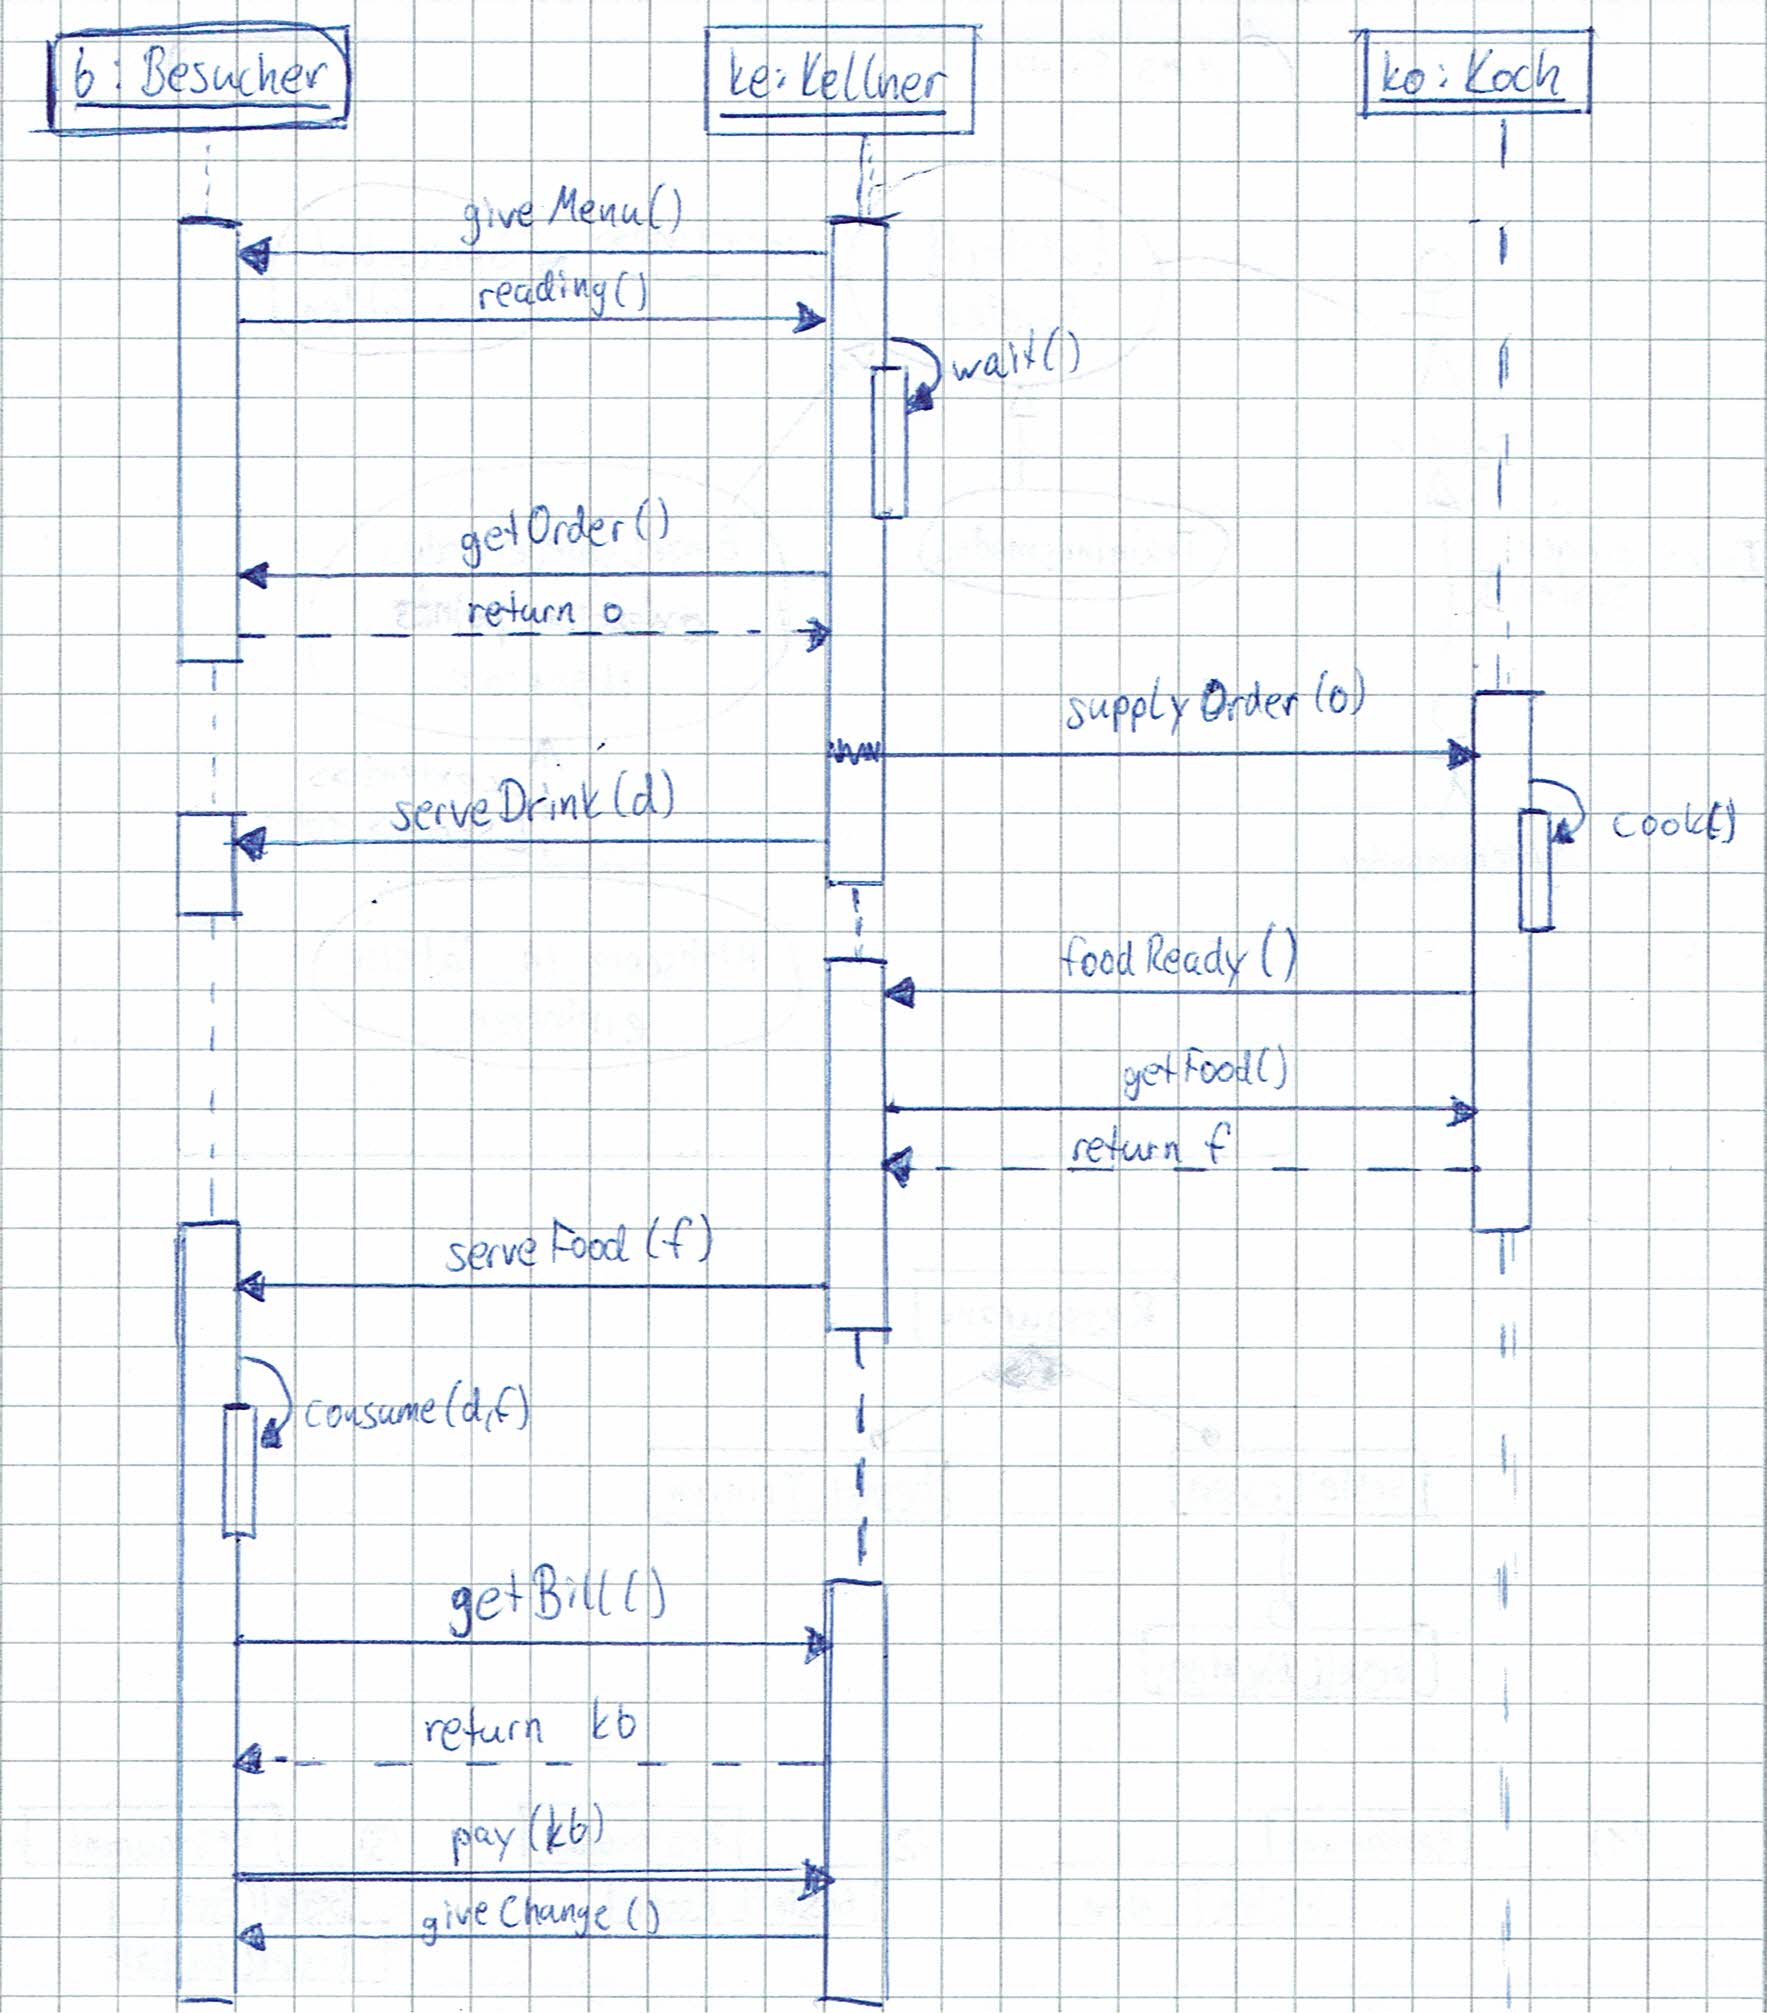 b : Besucher
ke : Kellner
ko : Koch
giveMenu()
reading()
wait()
getOrder()
return o
supplyOrder(o)
serveDrink(d)
cook()
foodReady()
getFood()
return f
serveFood(f)
consume(d,f)
getBill()
return kb
pay(kb)
giveChange()